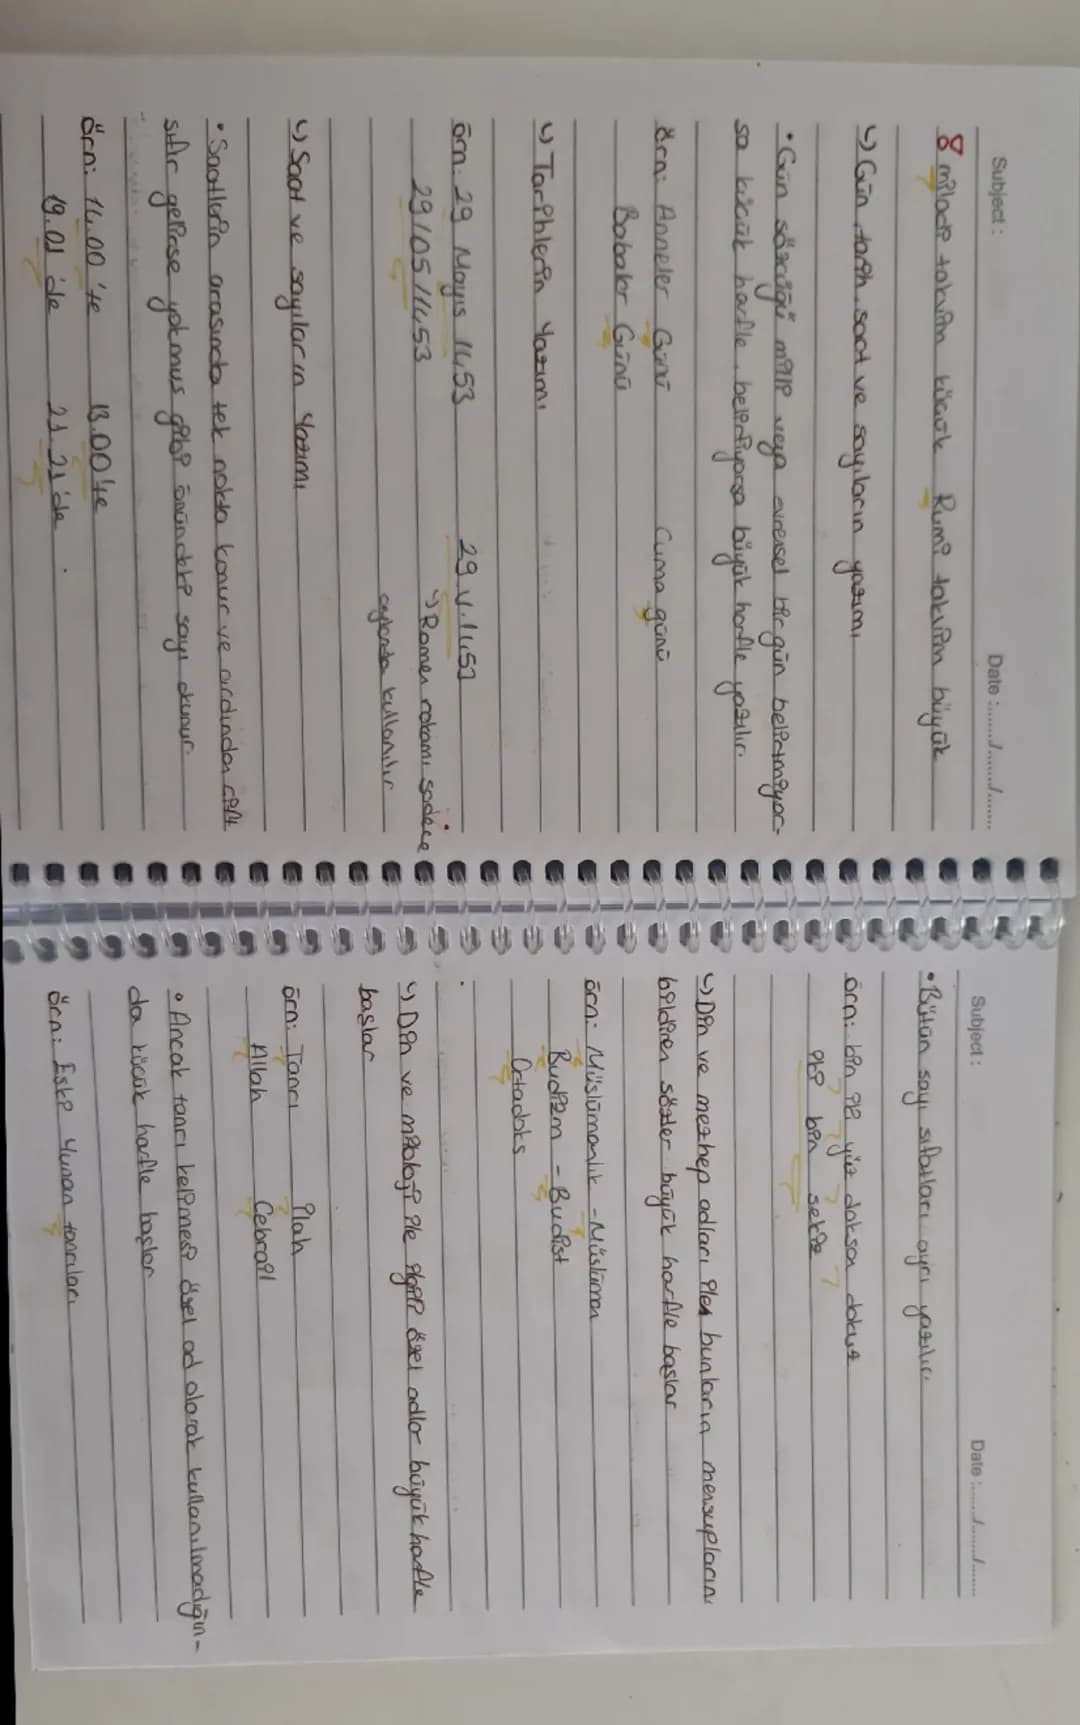 Subject : Date :....../....../......
8 miladi takvim küçük Rumi takvim büyük
↳ Gün, tarih, saat ve sayıların yazımı
• Gün sözcüğü milli veya evrensel bir gün belirtmiyor-
sa küçük harfle, belirtiyorsa büyük harfle yazılır.
örn: Anneler Günü Cuma günü
Babalar Günü
↳ Tarihlerin Yazımı
örn: 29 Mayıs 1453 29.V.1453
29/05/1453 ↳ Romen rakamı sadece
aylarda kullanılır
↳ Saat ve sayıların Yazımı
• Saatlerin arasında tek nokta konur ve ardından çift
sıfır gelirse yokmuş gibi önündeki sayı okunur.
örn: 14.00'te 13.00'te
19.01'de 21.21'de.
Subject : Date :....../....../......
• Bütün sayı sıfatları ayrı yazılır.
örn: bin iki yüz doksan dokuz
iki bin sekiz
↳ Din ve mezhep adları ilen bunların mensuplarını
bildiren sözler büyük harfle başlar
örn: Müslümanlık - Müslüman
Budizm - Budist
Ortadoks
↳ Din ve mitoloji ile ilgili özel adlar büyük harfle
başlar
örn: Tanrı İlah
Allah Cebrail
• Ancak tanrı kelimesi özel ad olarak kullanılmadığın-
da küçük harfle başlar
örn: Eski Yunan tanrıları